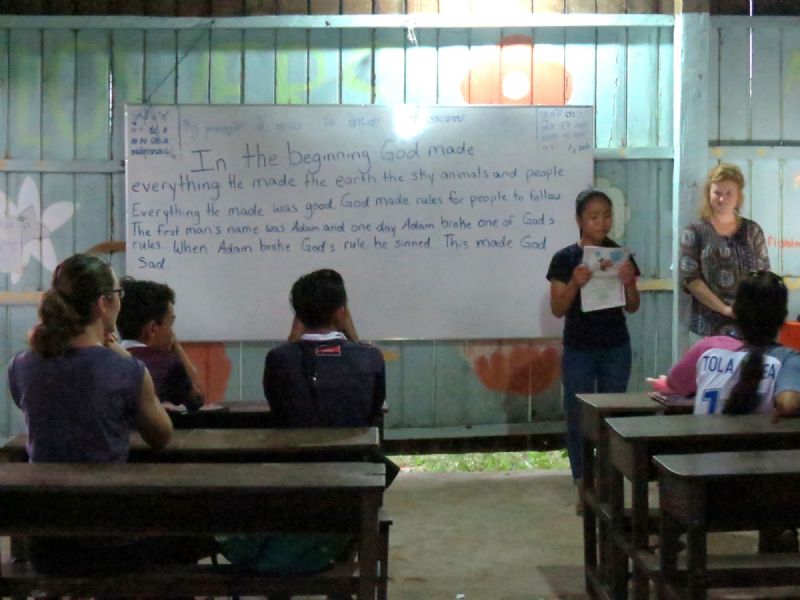 In the beginning God made
everything He made the earth the sky animals and people
Everything He made was good God made rules for people to follow
The first man's name was Adam and one day Adam broke one of God's
rules. When Adam broke God's rule, he sinned. This made God
Sad
TOLA